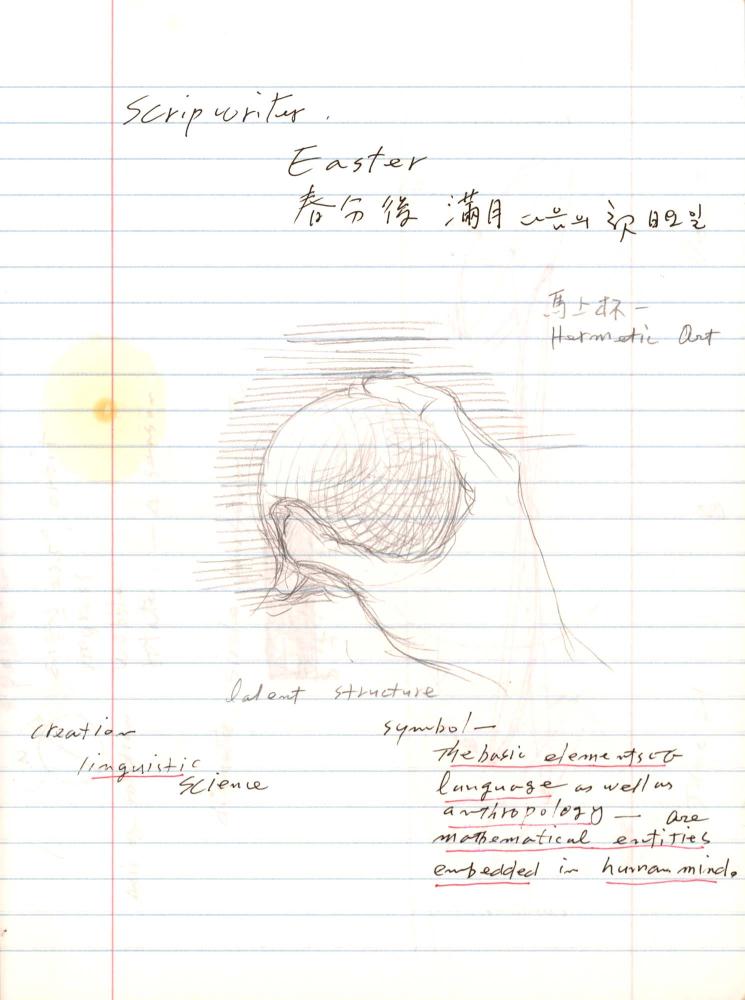 Scripwriter.
Easter
春分後 滿月 다음의 첫 日요일
馬上杯 —
Hermetic Art
latent structure
creation
linguistic
science
symbol —
the basic elements of
language as well as
anthropology — are
mathematical entities
embedded in human mind.